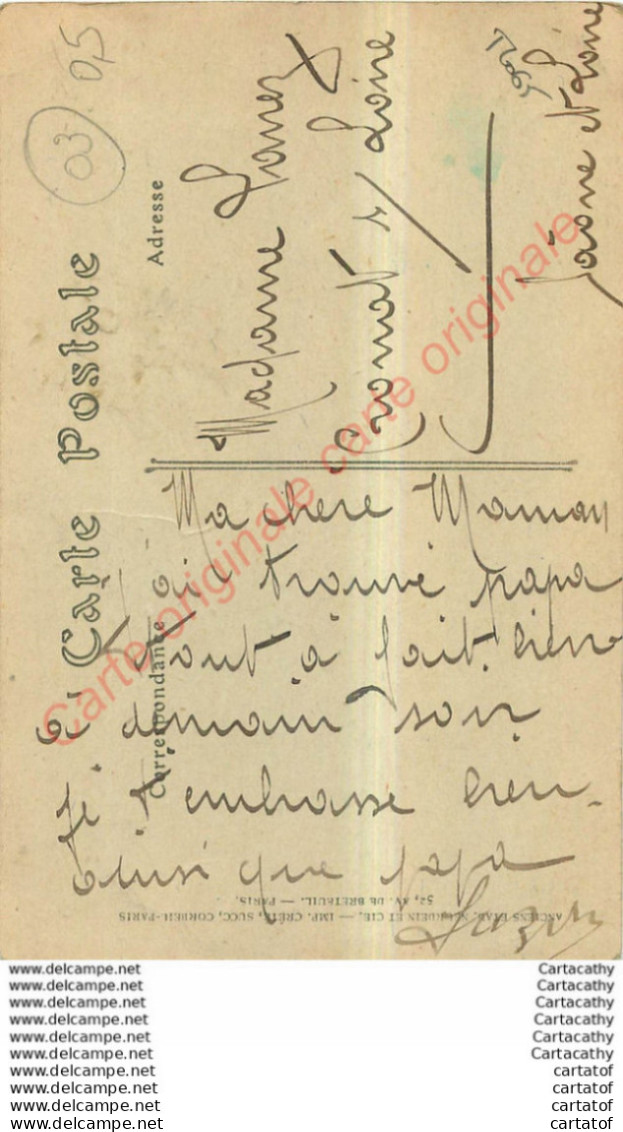 03
0,5
Carte Postale
Adresse
Madame
Cronat s/ Loire
Saône et Loire
Correspondance
Ma chere Maman
J'ai trouvé papa
tout à fait bien
à demain soir
je t'embrasse bien
ainsi que papa
ANCIENS ETAB. NEURDEIN ET CIE. — IMP. CRÉTÉ, SUCC, CORBEIL-PARIS
52, AV. DE BRETEUIL. — PARIS.
Carte originale carte originale
www.delcampe.net Cartacathy
www.delcampe.net Cartacathy
www.delcampe.net Cartacathy
www.delcampe.net Cartacathy
www.delcampe.net Cartacathy
www.delcampe.net Cartacathy
www.delcampe.net cartatof
www.delcampe.net cartatof
www.delcampe.net cartatof
www.delcampe.net cartatof